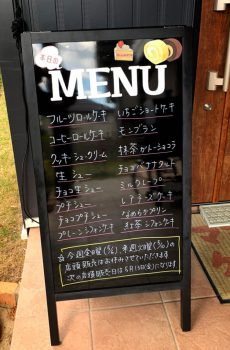 本日の
MENU
フルーツロールケーキ
コーヒーロールケーキ
クッキーシュークリーム
生シュー
チョコ生シュー
プチシュー
チョコプチシュー
プレーンシフォンケーキ
いちごショートケーキ
モンブラン
抹茶ガトーショコラ
チョコバナナタルト
ミルクレープ
レアチーズケーキ
なめらかプリン
紅茶シフォンケーキ
今週金曜(5/6) 来週火曜(5/10)の
店頭販売はお休みさせていただきます
次の店頭販売日は5月13日(金)になります